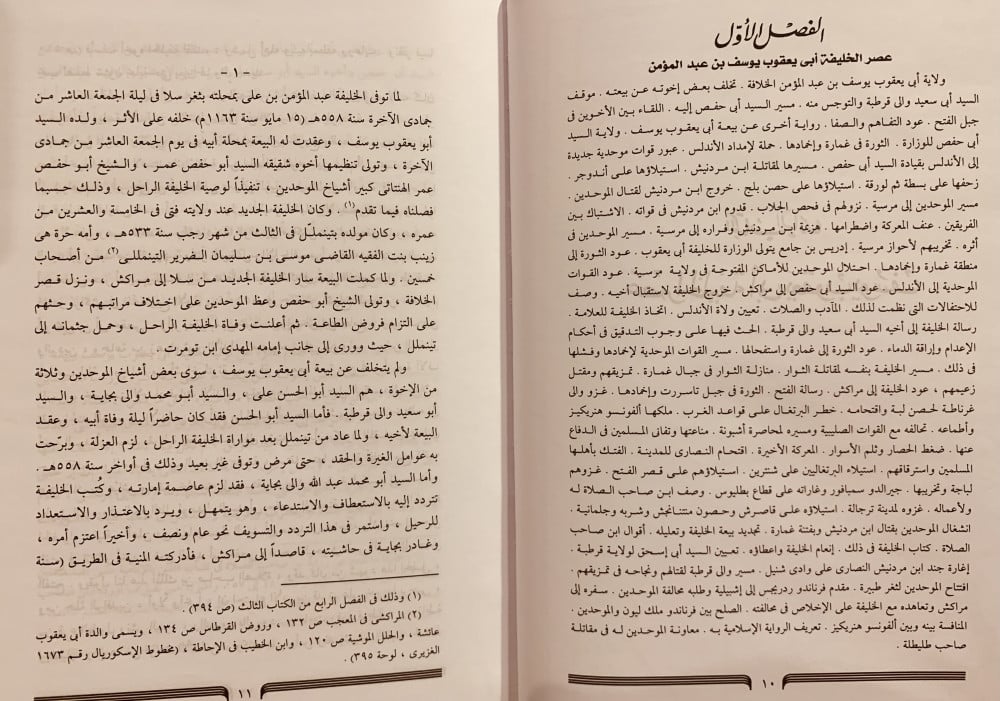 الفصل الأوّل
عصر الخليفة أبى يعقوب يوسف بن عبد المؤمن
ولاية أبي يعقوب يوسف بن عبد المؤمن الخلافة . تخلف بعض إخوته عن بيعته . موقف
السيد أبي سعيد والى قرطبة والتوجس منه . مسير السيد أبي حفص إليه . اللقاء بين الأخوين فى
جبل الفتح . عود التفاهم والصفا . رواية أخرى عن بيعة أبي يعقوب يوسف . ولاية السيد
أبي حفص للوزارة . الثورة فى غمارة وإخمادها . حملة لإمداد الأندلس . عبور قوات موحدية جديدة
إلى الأندلس بقيادة السيد أبي حفص . مسيرها لمقاتلة ابن مردنيش . استيلاؤها على أندوجر .
زحفها على بسطة ثم لورقة . استيلاؤها على حصن بلج . خروج ابن مردنيش لقتال الموحدين .
مسير الموحدين إلى مرسية . نزولهم فى فحص الجلاب . قدوم ابن مردنيش فى قواته . الاشتباك بين
الفريقين . عنف المعركة واضطرامها . هزيمة ابن مردنيش وفراره إلى مرسية . مسير الموحدين فى
أثره . تخريبهم لأحواز مرسية . إدريس بن جامع يتولى الوزارة للخليفة أبي يعقوب . عود الثورة إلى
منطقة غمارة وإخمادها . احتلال الموحدين للأماكن المفتوحة فى ولاية مرسية . عود القوات
الموحدية إلى الأندلس . عود السيد أبي حفص إلى مراكش . خروج الخليفة لاستقبال أخيه . وصف
للاحتفالات التى نظمت لذلك . المآدب والصلات . تعيين ولاة الأندلس . اتخاذ الخليفة للعلامة .
رسالة الخليفة إلى أخيه السيد أبي سعيد والى قرطبة . الحث فيها على وجوب التدقيق فى أحكام
الإعدام وإراقة الدماء . عود الثورة إلى غمارة واستفحالها . مسير القوات الموحدية لإخمادها وفشلها
فى ذلك . مسير الخليفة بنفسه لمقاتلة الثوار . منازلة الثوار فى جبال غمارة . تمزيقهم ومقتل
زعيمهم ، عود الخليفة إلى مراكش . رسالة الفتح . الثورة فى جبل تاسررت وإخمادها . غزو والى
غرناطة لحصن لبة واقتحامه . خطر البرتغال على قواعد الغرب . ملكها ألفونسو هنريكيز
وأطماعه . تحالفه مع القوات الصليبية ومسيره لمحاصرة أشبونة . مناعتها وتفانى المسلمين فى الدفاع
عنها . ضغط الحصار وثلم الأسوار . المعركة الأخيرة . اقتحام النصارى للمدينة . الفتك بأهلها
المسلمين واسترقاقهم . استيلاء البرتغاليين على شنترين . استيلاؤهم على قصر الفتح . غزوهم
لباجة وتخريبها . جيرالدو سمبافور وغاراته على قطاع بطليوس . وصف ابن صاحب الصلاة له
ولأعماله . غزوه لمدينة ترجالة . استيلاؤه على قاصرش وحصون منتانجش وشربه وجلمانية .
انشغال الموحدين بقتال ابن مردنيش وبفتنة غمارة . تجديد بيعة الخليفة وتعليله . أقوال ابن صاحب
الصلاة . كتاب الخليفة فى ذلك . إنعام الخليفة واعطاؤه . تعيين السيد أبي إسحق لولاية قرطبة .
إغارة جند ابن مردنيش النصارى على وادى شنيل . مسير والى قرطبة لقتالهم ونجاحه فى تمزيقهم .
افتتاح الموحدين لثغر طبيرة . مقدم فرناندو ردريجس إلى إشبيلية وطلبه محالفة الموحدين . سفره إلى
مراكش وتعاهده مع الخليفة على الإخلاص فى محالفته . الصلح بين فرناندو ملك ليون والموحدين .
المنافسة بينه وبين ألفونسو هنريكيز . تعريف الرواية الإسلامية به . معاونة الموحدين له فى مقاتلة
صاحب طليطلة .
١٠
- ١ -
لما توفى الخليفة عبد المؤمن بن على بمحلته بثغر سلا فى ليلة الجمعة العاشر من
جمادى الآخرة سنة ٥٥٨هـ (١٥ مايو سنة ١١٦٣م) خلفه على الأثر ، ولده السيد
أبو يعقوب يوسف ، وعقدت له البيعة بمحلة أبيه فى يوم الجمعة العاشر من جمادى
الآخرة ، وتولى تنظيمها أخوه شقيقه السيد أبو حفص عمر ، والشيخ أبو حفص
عمر الهنتاتى كبير أشياخ الموحدين ، تنفيذاً لوصية الخليفة الراحل ، وذلك حسبما
فصلناه فيما تقدم(١) . وكان الخليفة الجديد عند ولايته فتى فى الخامسة والعشرين من
عمره ، وكان مولده بتينملّل فى الثالث من شهر رجب سنة ٥٣٣هـ ، وأمه حرة هى
زينب بنت الفقيه القاضى موسى بن سليمان الضرير التينمللى(٢) من أصحاب
خمسين . ولما كملت البيعة سار الخليفة الجديد من سلا إلى مراكش ، ونزل قصر
الخلافة ، وتولى الشيخ أبو حفص وعظ الموحدين على اختلاف مراتبهم ، وحثهم
على التزام فروض الطاعة . ثم أعلنت وفاة الخليفة الراحل ، وحمل جثمانه إلى
تينملل ، حيث وورى إلى جانب إمامه المهدى ابن تومرت .
ولم يتخلف عن بيعة أبى يعقوب يوسف ، سوى بعض أشياخ الموحدين وثلاثة
من الإخوة ، هم السيد أبو الحسن على ، والسيد أبو محمد والى بجاية ، والسيد
أبو سعيد والى قرطبة . فأما السيد أبو الحسن فقد كان حاضراً ليلة وفاة أبيه ، وعقد
البيعة لأخيه ، ولما عاد من تينملل بعد مواراة الخليفة الراحل ، لزم العزلة ، وبرّحت
به عوامل الغيرة والحقد ، حتى مرض وتوفى غير بعيد وذلك فى أواخر سنة ٥٥٨هـ .
وأما السيد أبو محمد عبد الله والى بجاية ، فقد لزم عاصمة إمارته ، وكُتب الخليفة
تتردد إليه بالاستعطاف والاستدعاء ، وهو يتمهل ، ويرد بالاعتذار والاستعداد
للرحيل ، واستمر فى هذا التردد والتسويف نحو عام ونصف ، وأخيراً اعتزم أمره ،
وغادر بجاية فى حاشيته ، قاصداً إلى مراكش ، فأدركته المنية فى الطريق (سنة
(١) وذلك فى الفصل الرابع من الكتاب الثالث (ص ٣٩٤) .
(٢) المراكشى فى المعجب ص ١٣٢ ، وروض القرطاس ص ١٣٤ ، ويسمى والدة أبي يعقوب
عائشة ، والحلل الموشية ص ١٢٠ ، وابن الخطيب فى الإحاطة ، (مخطوط الإسكوريال رقم ١٦٧٣
الغزيرى ، لوحة ٣٩٥) .
١١